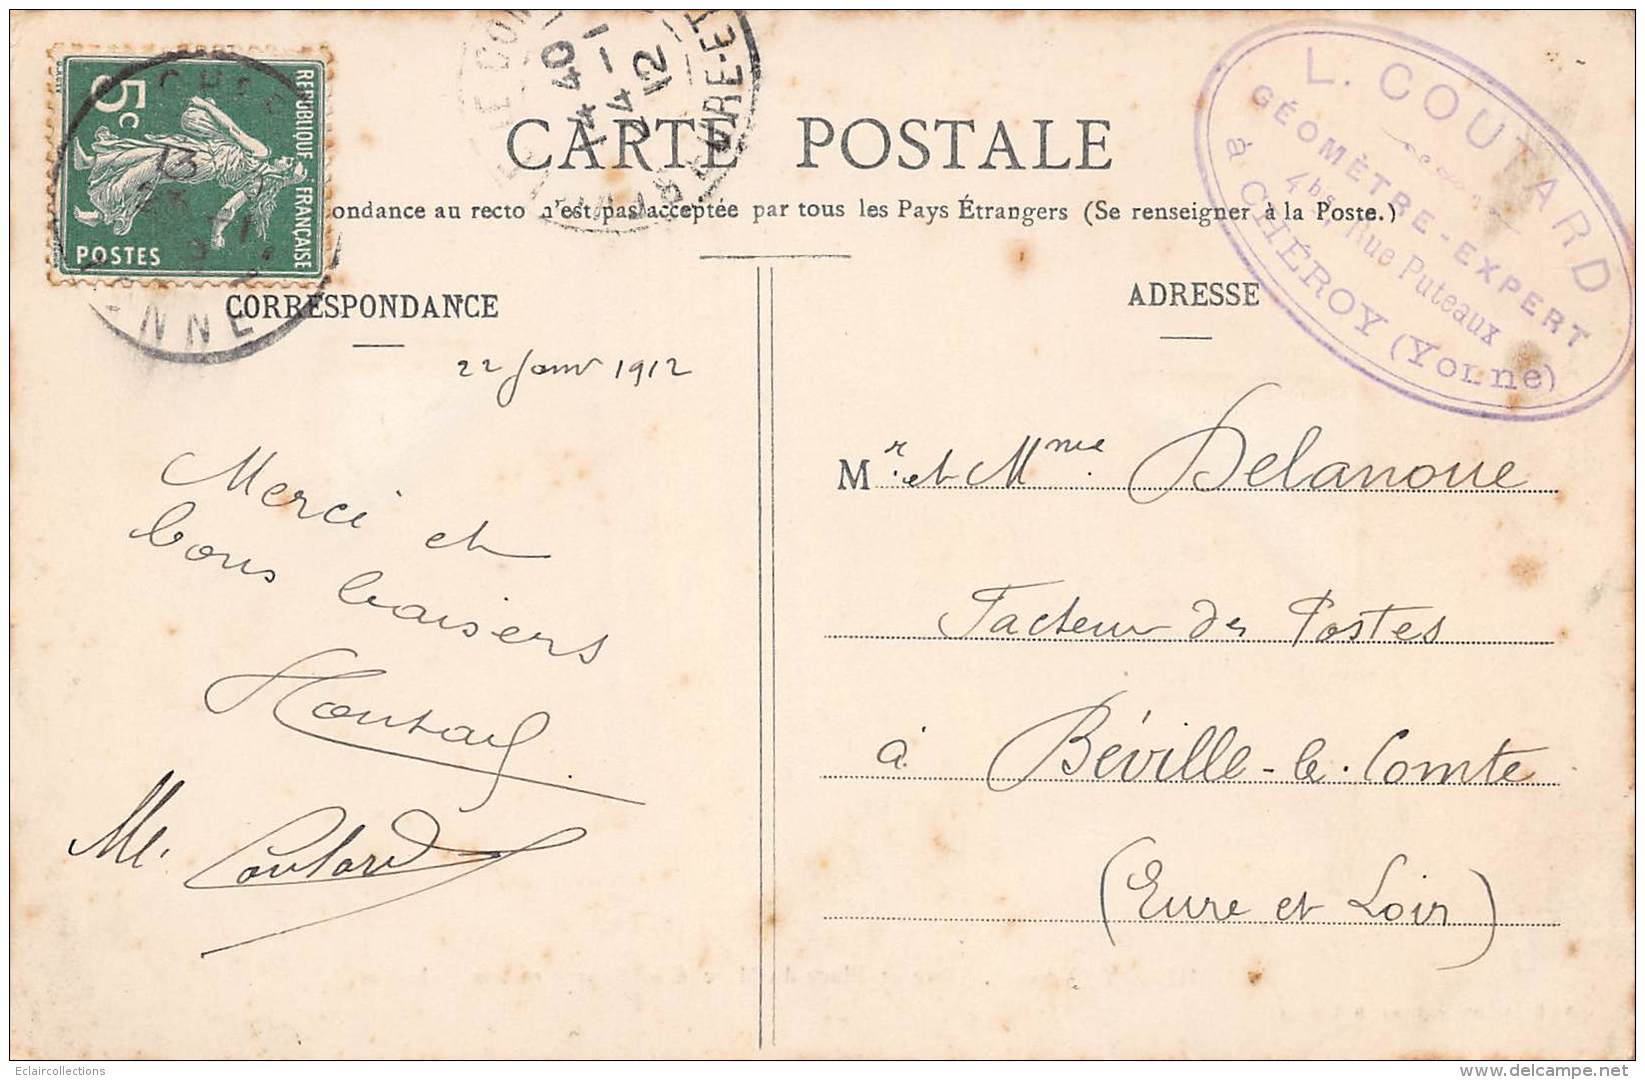 REPUBLIQUE FRANÇAISE
5c
POSTES
14 40
24-1
12
EURE-ET
L. COUTARD
GÉOMÈTRE-EXPERT
4bis, Rue Puteaux
à CHÉROY (Yonne)
CARTE POSTALE
ondance au recto n'est pas acceptée par tous les Pays Étrangers (Se renseigner à la Poste.)
CORRESPONDANCE
22 Janv 1912
Merci et
bons baisers
Coutard
ADRESSE
Mr et Mme Delanoue
Facteur des Postes
à Béville-le-Comte
(Eure et Loir)
Eclaircollections
delcampe.net